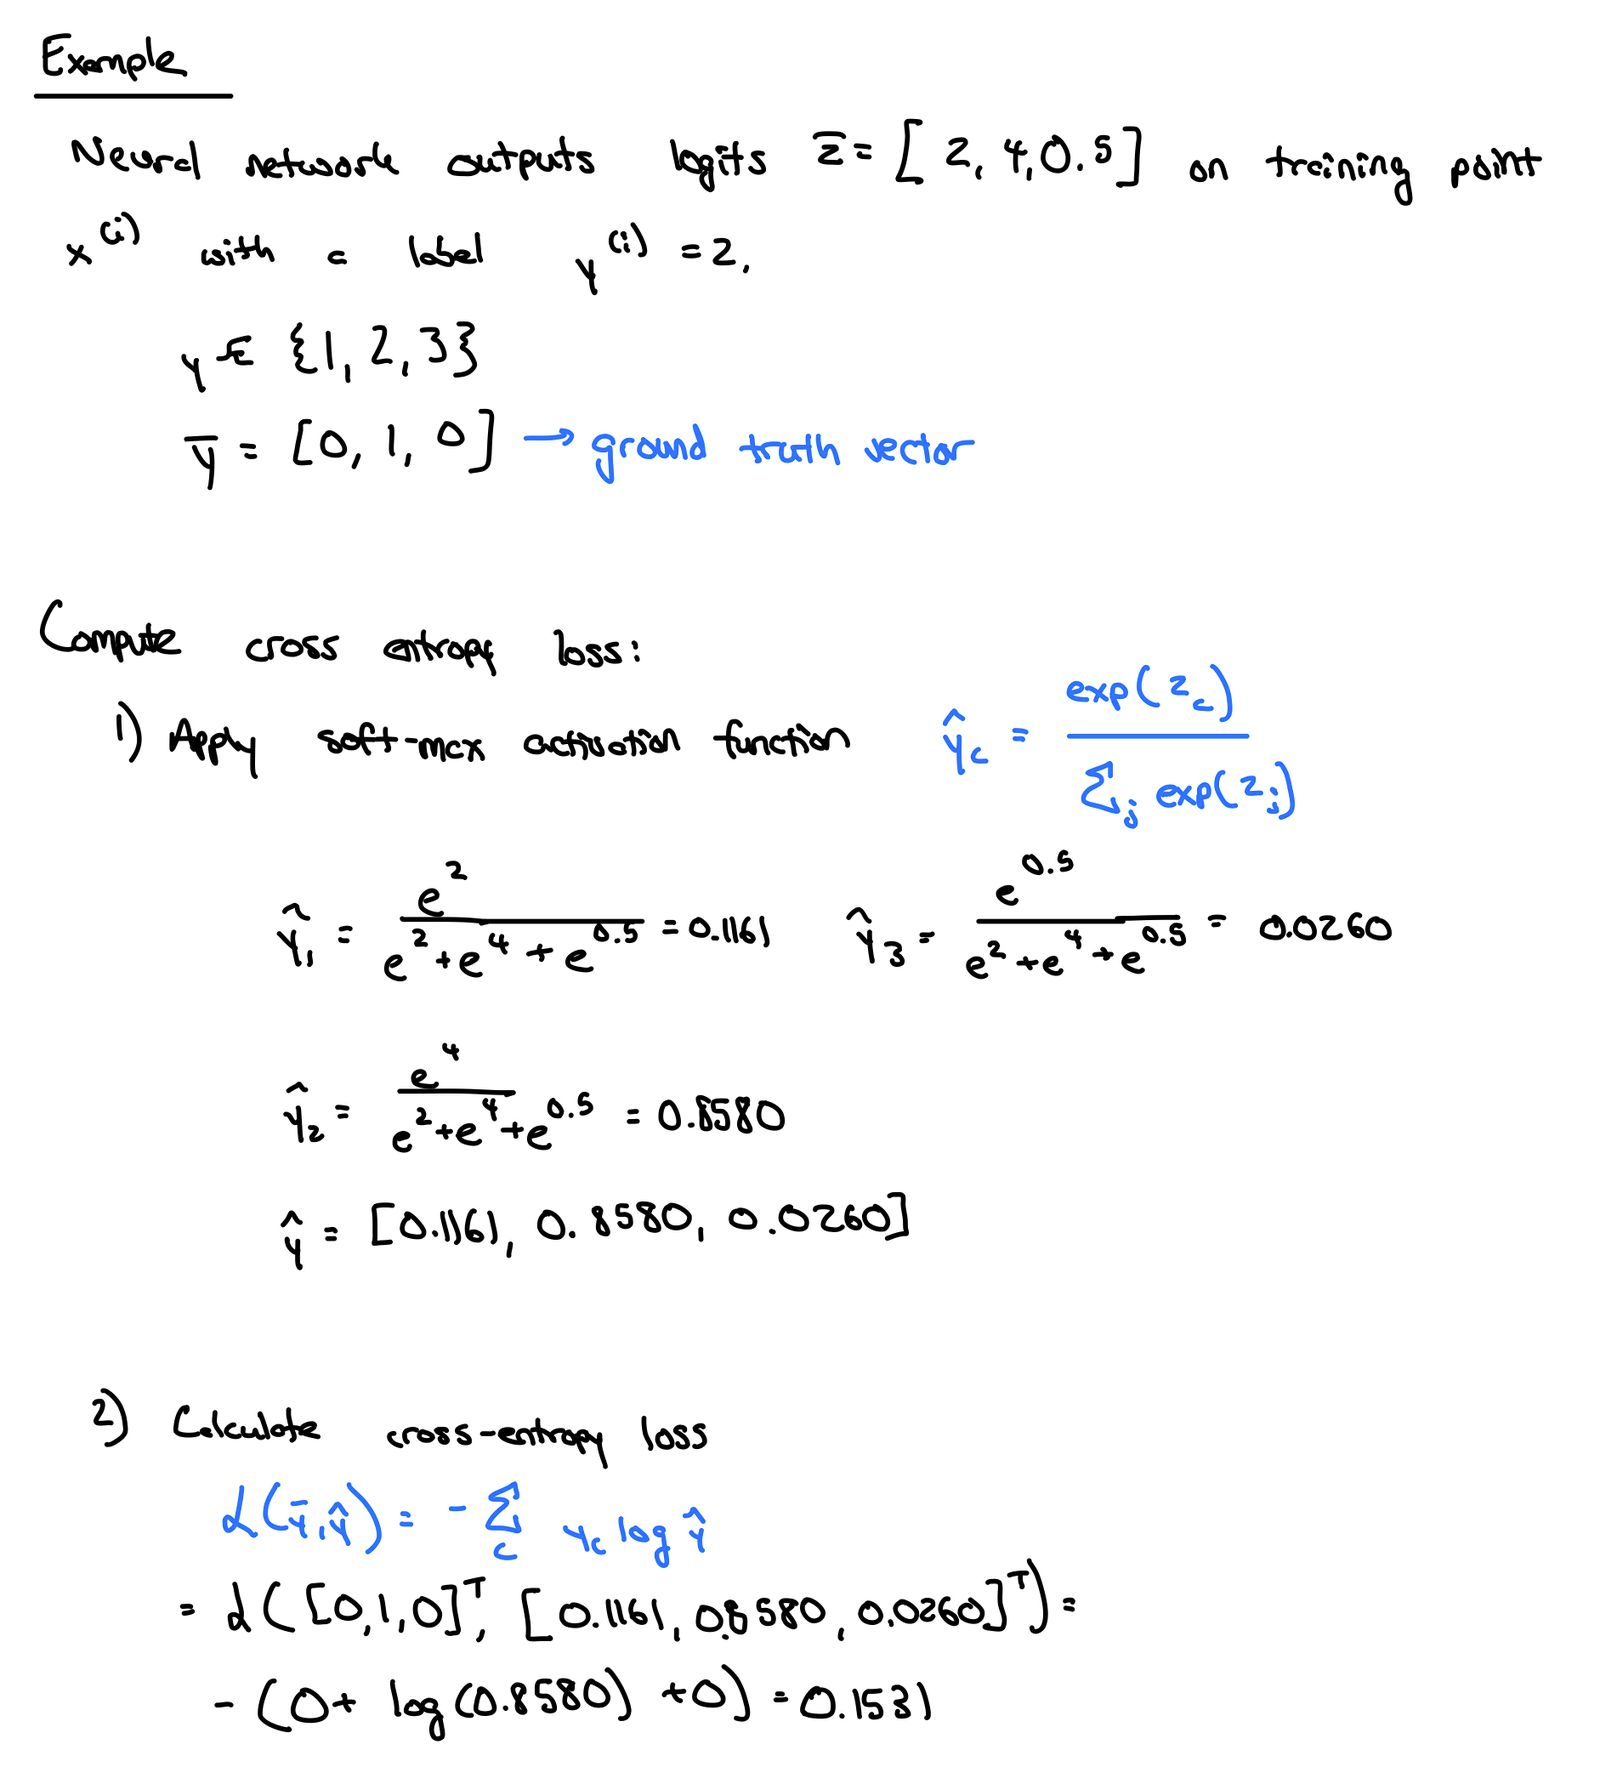 Example
Neural network outputs logits z̄ = [2, 4, 0.5] on training point
x^(i) with a label y^(i) = 2.
y ∈ {1, 2, 3}
ȳ = [0, 1, 0] → ground truth vector
Compute cross entropy loss:
1) Apply soft-max activation function ŷ_c = exp(z_c) / Σ_j exp(z_j)
ŷ_1 = e^2 / (e^2 + e^4 + e^0.5) = 0.1161 ŷ_3 = e^0.5 / (e^2 + e^4 + e^0.5) = 0.0260
ŷ_2 = e^4 / (e^2 + e^4 + e^0.5) = 0.8580
ŷ = [0.1161, 0.8580, 0.0260]
2) Calculate cross-entropy loss
L(ȳ, ŷ) = - Σ_c y_c log ŷ
= L([0, 1, 0]^T, [0.1161, 0.8580, 0.0260]^T) =
- (0 + log(0.8580) + 0) = 0.1531